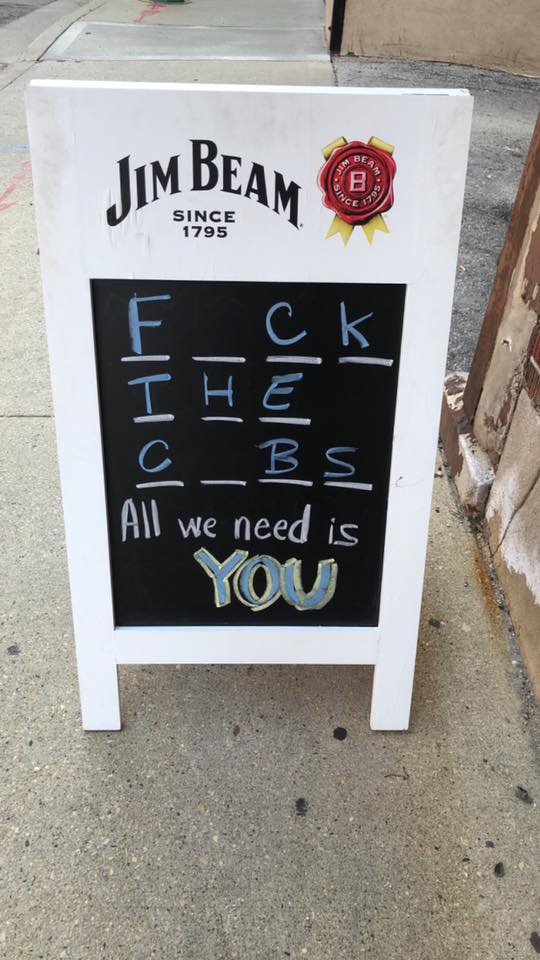 JIM BEAM
SINCE
1795
JIM BEAM
B
SINCE 1795
F _ C K
T H E
C _ B S
All we need is
YOU